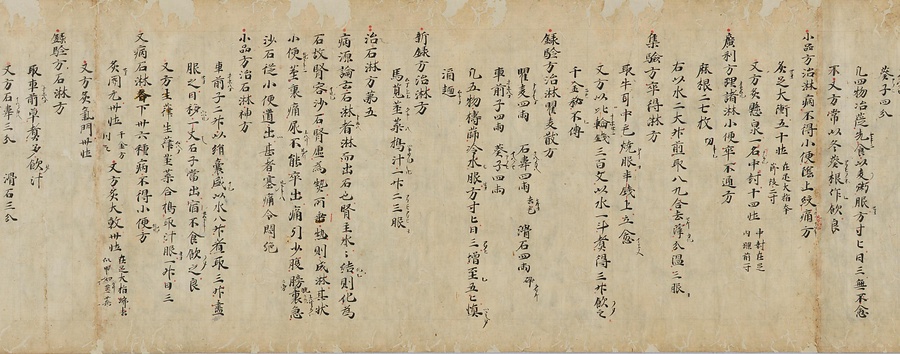 葵子四分
凡四物治庭先食以麦粥服方寸匕日三無不愈
不 又方常以冬葵根作飲良
小品方治淋病不得小便陰上絞痛方
灸足大衝五十壮 在足大指本節後二寸
又方灸懸泉一名中封十四壮 中封在足内踝前一寸
廣利方理諸淋小便卒不通方
麻根二七枚
右以水二大升煎取八九合去滓分温三服
集驗方卒得淋方
取牛耳中毛燒服半錢上立愈
又方以比輪錢三百文以水一斗煮得三升飲之
千金秘不傳
錄驗方治淋瞿麦散方
瞿麦四両 石韋四両去毛 滑石四両碎
車前子四両 葵子四両
凡五物擣篩冷水服方寸匕日三增至五匕慎
酒麺
新錄方治淋方
馬莧莖葉擣汁一升二三服
治石淋方第五
病源論云石淋者淋而出石也腎主水々結則化為
石故腎客沙石腎虚為熱所乗熱則成淋其状
小便莖裏痛尿不能卒出痛引少腹膀胱裏急
沙石從小便道出甚者塞痛令悶絶
小品方治石淋神方
車前子二升以絹嚢盛以水八升煮取三升盡
服之日移二丈石子當出宿不食飲之良
又方生葎生葎莖葉合擣取汁服一升日三
又病石淋齊下卅六種病不得小便方
灸関元卅壮 又方灸大敦卅壮
又方灸氣門卅壮
錄驗方石淋方
取車前草煮多飲汁
又方石韋三分 滑石三分